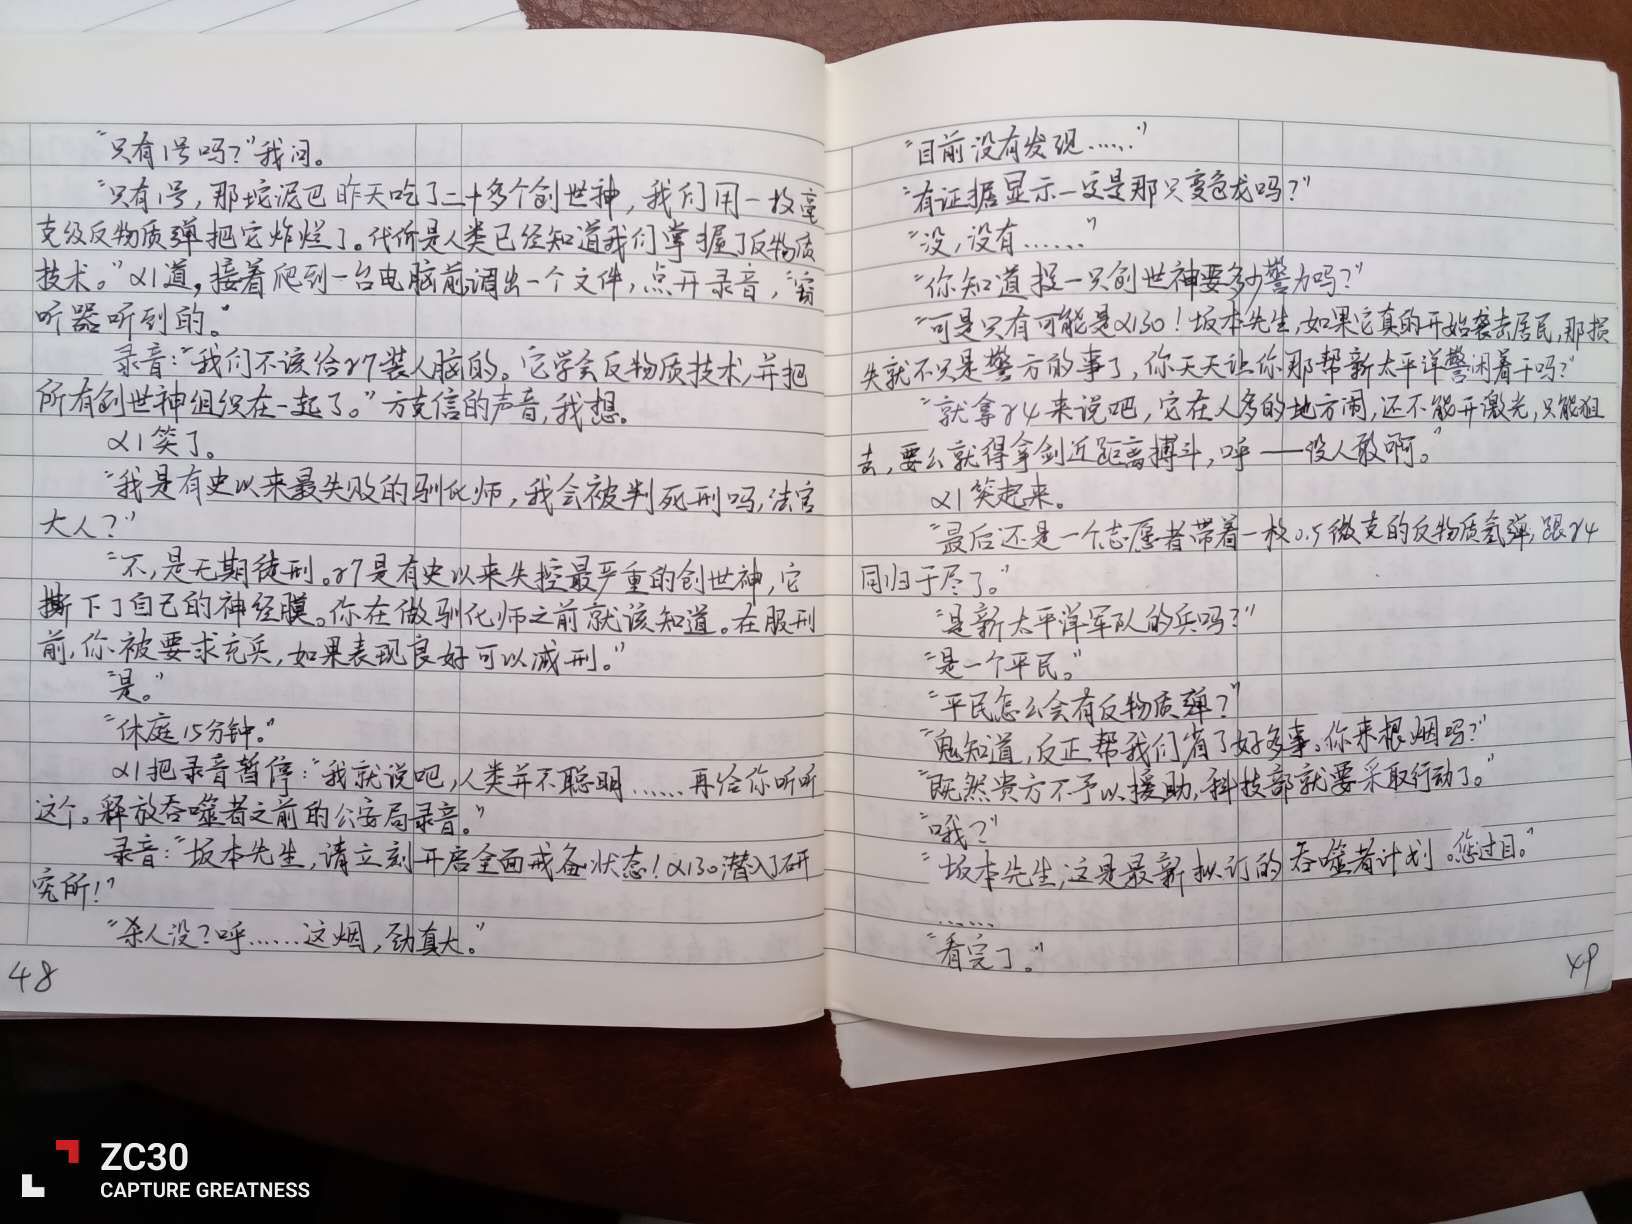 “只有1号吗？”我问。
“只有1号，那坨泥巴昨天吃了二十多个创世神，我们用一枚毫
克级反物质弹把它炸烂了。代价是人类已经知道我们掌握了反物质
技术。”α1道，接着爬到一台电脑前调出一个文件，点开录音，“窃
听器听到的。”
录音：“我们不该给γ7装人脑的。它学会反物质技术，并把
所有创世神组织在一起了。”方支信的声音，我想。
α1笑了。
“我是有史以来最失败的驯化师，我会被判死刑吗，法官
大人？”
“不，是无期徒刑。γ7是有史以来失控最严重的创世神，它
撕下了自己的神经膜。你在做驯化师之前就该知道。在服刑
前，你被要求充兵，如果表现良好可以减刑。”
“是。”
“休庭15分钟。”
α1把录音暂停：“我就说吧，人类并不聪明……再给你听听
这个。释放吞噬者之前的公安局录音。”
录音：“坂本先生，请立刻开启全面戒备状态！α130潜入了研
究所！”
“杀人没？呼……这烟，劲真大。”
48
“目前没有发现……”
“有证据显示一定是那只变色龙吗？”
“没，没有……”
“你知道捉一只创世神要多少警力吗？”
“可是只有可能是α130！坂本先生，如果它真的开始袭击居民，那损
失就不只是警方的事了，你天天让你那帮新太平洋警闲着干吗？”
“就拿γ4来说吧，它在人多的地方闹，还不能开激光，只能狙
击，要么就得拿剑近距离搏斗，呼——没人敢啊。”
α1笑起来。
“最后还是一个志愿者带着一枚0.5微克的反物质氢弹，跟γ4
同归于尽了。”
“是新太平洋军队的兵吗？”
“是一个平民。”
“平民怎么会有反物质弹？”
“鬼知道，反正帮我们省了好多事。你来根烟吗？”
“既然贵方不予以援助，科技部就要采取行动了。”
“哦？”
“坂本先生，这是最新拟订的吞噬者计划。您过目。”
……
“看完了。”
49
ZC30
CAPTURE GREATNESS